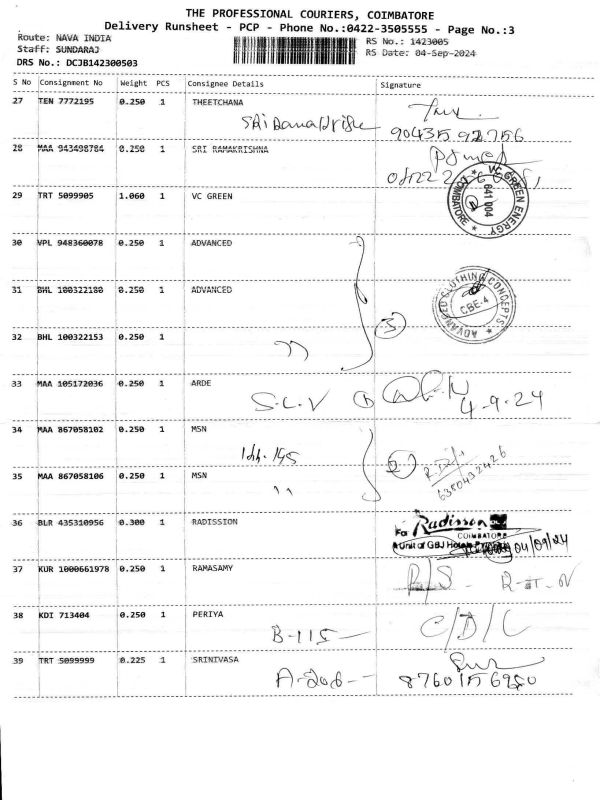 THE PROFESSIONAL COURIERS, COIMBATORE
Delivery Runsheet - PCP - Phone No.:0422-3505555 - Page No.:3
Route: NAVA INDIA
RS No.: 1423005
Staff: SUNDARAJ
RS Date: 04-Sep-2024
DRS No.: DCJB142300503
S No Consignment No Weight PCS Consignee Details Signature
27 TEN 7772195 0.250 1 THEETCHANA
28 MAA 943498784 0.250 1 SRI RAMAKRISHNA
29 TRT 5099905 1.060 1 VC GREEN
VC GREEN ENERGY COIMBATORE 641 004
30 VPL 948360078 0.250 1 ADVANCED
31 BHL 100322180 0.250 1 ADVANCED
ADVANCED CLOTHING CONCEPTS CBE-4
32 BHL 100322153 0.250 1
3
33 MAA 105172036 0.250 1 ARDE
S.L.V 1 4-9-24
34 MAA 867058102 0.250 1 MSN
2
35 MAA 867058106 0.250 1 MSN
6380432426
36 BLR 435310956 0.300 1 RADISSION
For Radisson BLU
COIMBATORE
A Unit of GBJ Hotels 04/09/24
37 KUR 1000661978 0.250 1 RAMASAMY
R/S
38 KDI 713404 0.250 1 PERIYA
B-115 C/D/L
39 TRT 5099999 0.225 1 SRINIVASA
A-206 8760156950